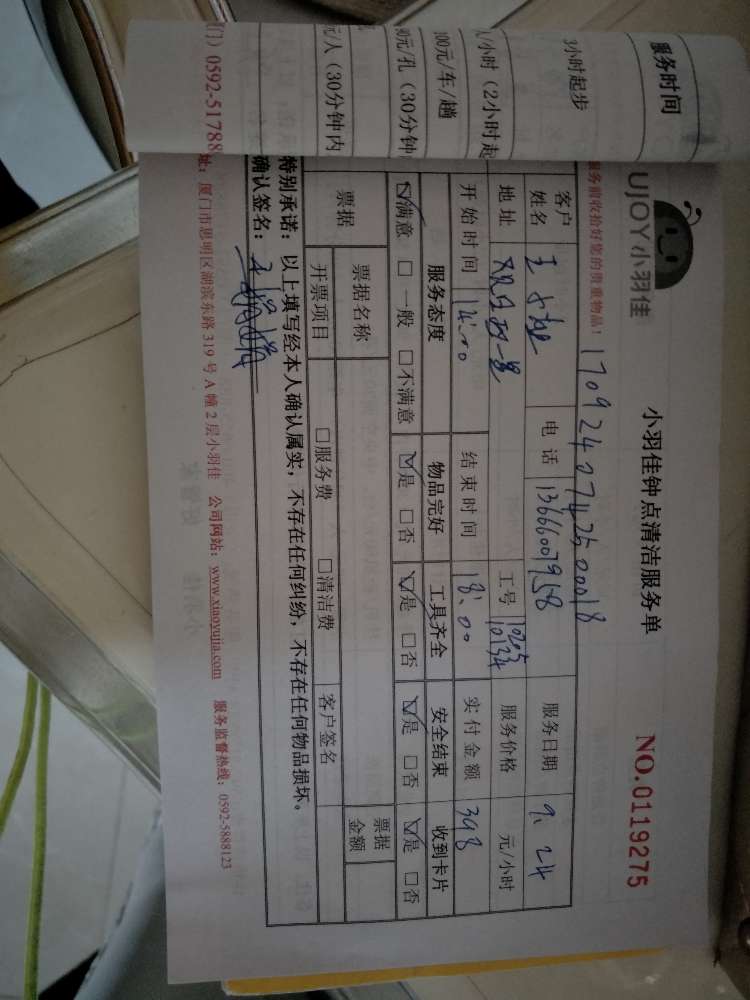 服务时间
3小时起步
人/小时（2小时起
100元/车/趟
30元/孔（30分钟
元/人（30分钟内
门）0592-51788
UJOY小羽佳
小羽佳钟点清洁服务单
NO.0119275
服务前收拾好您的贵重物品！
1709240742500018
客户姓名 王 电话 13666007958 服务日期 9.24
地址 工号 11205 10134 服务价格 元/小时
开始时间 14:00 结束时间 18:00 实付金额 398
服务态度 物品完好 工具齐全 安全结束 收到卡片
☑满意 □一般 □不满意 ☑是 □否 ☑是 □否 ☑是 □否 ☑是 □否
票据 票据名称 票据金额
开票项目 □服务费 □清洁费 客户签名
特别承诺：以上填写经本人确认属实，不存在任何纠纷，不存在任何物品损坏。
确认签名：
址：厦门市思明区湖滨东路 319 号 A 幢 2 层小羽佳 公司网站：www.xiaoyujia.com 服务监督热线：0592-5888123